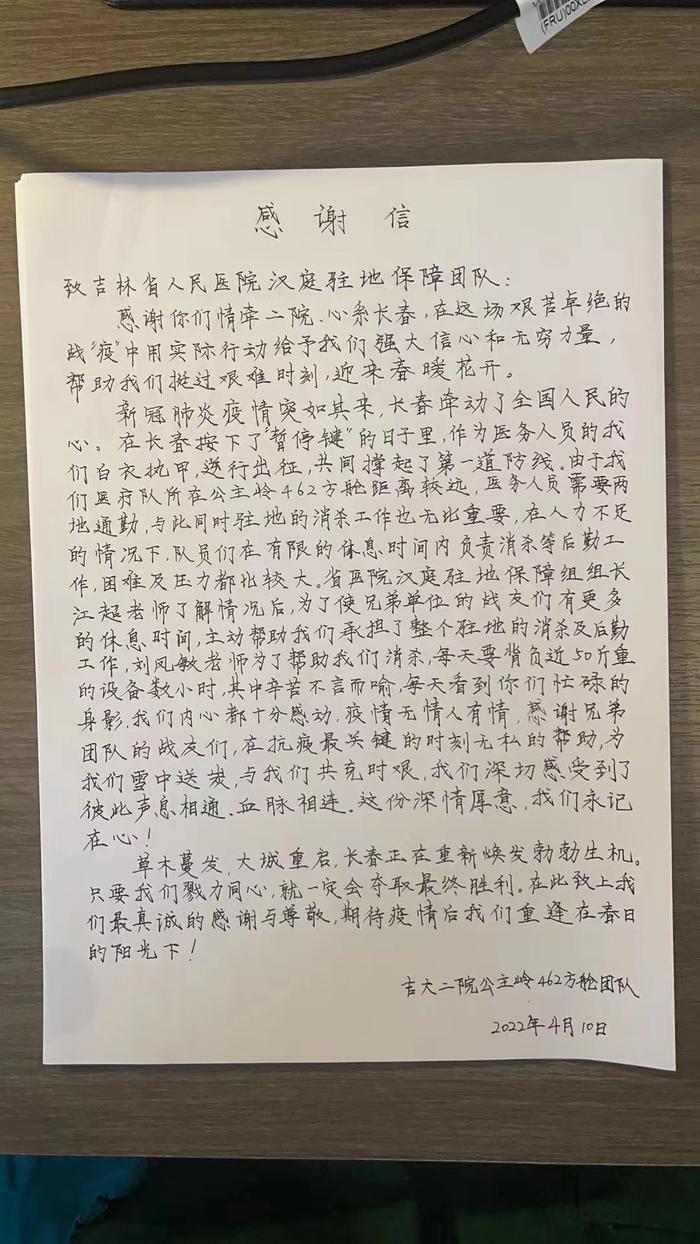 (FRU)00XL
感谢信
致吉林省人民医院汉庭驻地保障团队:
感谢你们情牵二院、心系长春,在这场艰苦卓绝的
战“疫”中用实际行动给予我们强大信心和无穷力量,
帮助我们挺过艰难时刻,迎来春暖花开。
新冠肺炎疫情突如其来,长春牵动了全国人民的
心。在长春按下了“暂停键”的日子里,作为医务人员的我
们白衣执甲,逆行出征,共同撑起了第一道防线。由于我
们医疗队所在公主岭462方舱距离较远,医务人员需要两
地通勤,与此同时驻地的消杀工作也无比重要,在人力不足
的情况下,队员们在有限的休息时间内负责消杀等后勤工
作,困难及压力都比较大。省医院汉庭驻地保障组组长
江超老师了解情况后,为了使兄弟单位的战友们有更多
的休息时间,主动帮助我们承担了整个驻地的消杀及后勤
工作,刘凤敏老师为了帮助我们消杀,每天要背负近50斤重
的设备数小时,其中辛苦不言而喻,每天看到你们忙碌的
身影,我们内心都十分感动,疫情无情人有情,感谢兄弟
团队的战友们,在抗疫最关键的时刻无私的帮助,为
我们雪中送炭,与我们共克时艰,我们深切感受到了
彼此声息相通、血脉相连。这份深情厚意,我们永记
在心!
草木蔓发,大城重启,长春正在重新焕发勃勃生机。
只要我们戮力同心,就一定会夺取最终胜利。在此致上我
们最真诚的感谢与尊敬,期待疫情后我们重逢在春日
的阳光下!
吉大二院公主岭462方舱团队
2022年4月10日